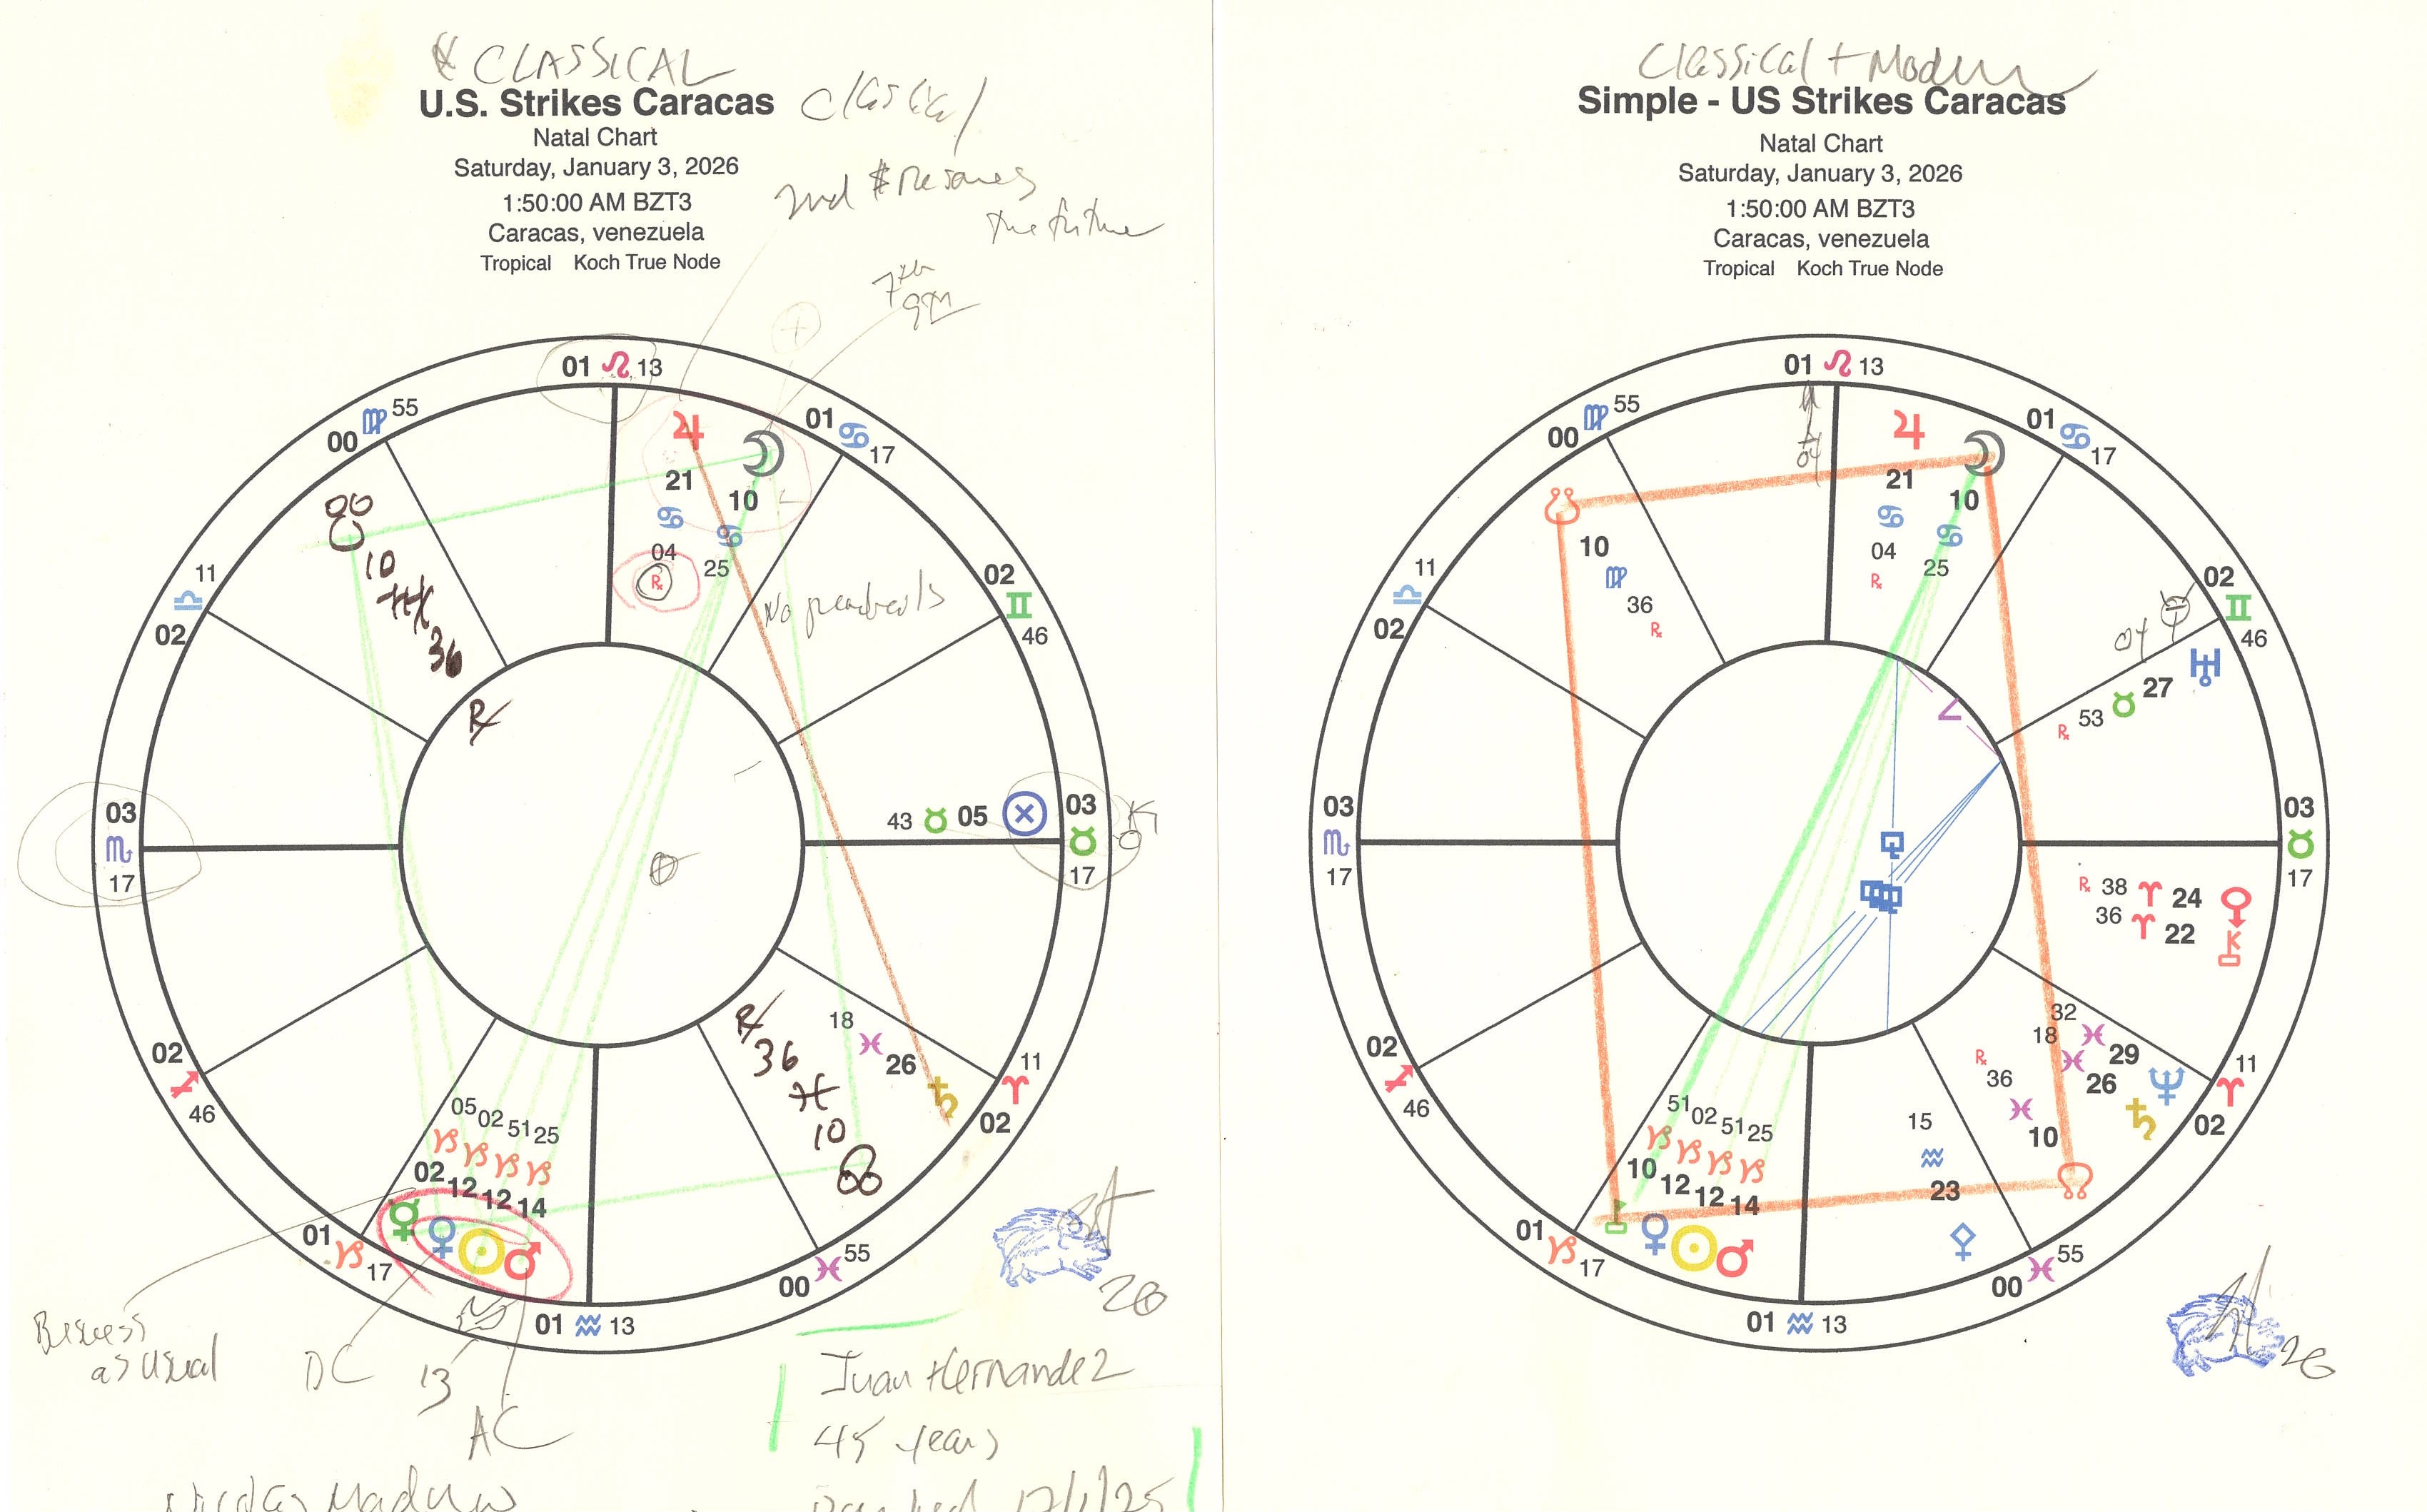 CLASSICAL
U.S. Strikes Caracas
Natal Chart
Saturday, January 3, 2026
1:50:00 AM BZT3
Caracas, venezuela
Tropical Koch True Node
2nd $
the future
7th
9th
01 ♌ 13
♍ 55
00
01 ♋ 17
21
10
♋
♋
04
25
℞
No
11
♎
02
10
36
℞
02
♊
46
03
♏
17
43 ♉ 05
03
♉
17
02
♐
46
18
♓
26
℞
36
♓
10
11
♈
02
05 02 51 25
♑ ♑ ♑ ♑
02 12 12 14
01
♑ 17
01 ♒ 13
00 ♓ 55
as usual
DC
13
AC
26
Juan Hernandez
45 years
Classical + Modern
Simple - US Strikes Caracas
Natal Chart
Saturday, January 3, 2026
1:50:00 AM BZT3
Caracas, venezuela
Tropical Koch True Node
01 ♌ 13
♍ 55
00
01 ♋ 17
21
10
♋
♋
04
25
℞
10
♍
36
℞
11
♎
02
02
♊
46
04
27
♉
53
℞
03
♏
17
03
♉
17
℞ 38 ♈ 24
36 ♈ 22
02
♐
46
32
18
♓
♓
29
26
℞
36
♓
10
11
♈
02
51 02 51 25
♑ ♑ ♑ ♑
10 12 12 14
15
♒
23
01
♑ 17
01 ♒ 13
00 ♓ 55
26